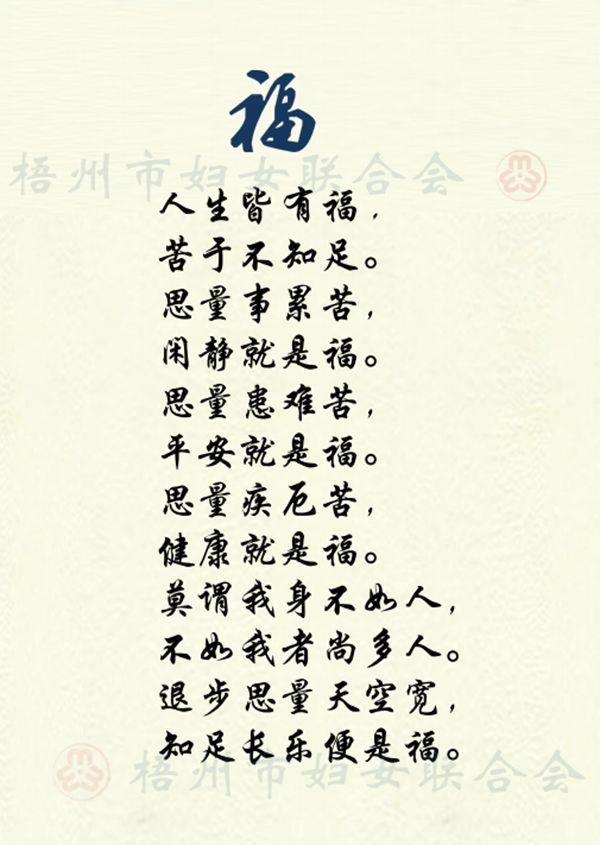 福
梧州市妇女联合会
人生皆有福，
苦于不知足。
思量事累苦，
闲静就是福。
思量患难苦，
平安就是福。
思量疾厄苦，
健康就是福。
莫谓我身不如人，
不如我者尚多人。
退步思量天空宽，
知足长乐便是福。
梧州市妇女联合会